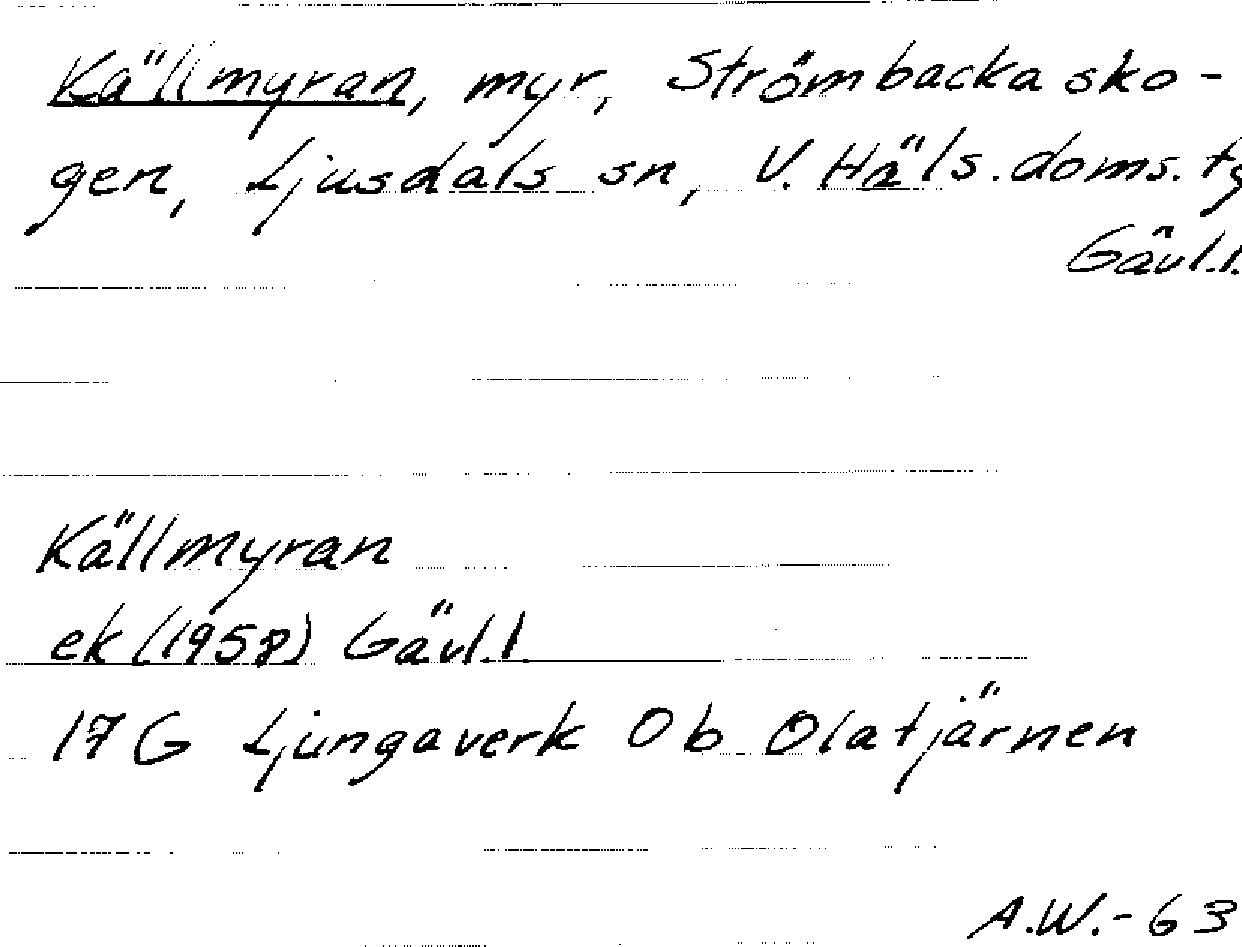 Källmyran, myr, Strömbacka sko-
gen, Ljusdals sn, V. Häls. doms. tg
Gävl.l.
Källmyran
ek (1958) Gävl.l.
17 G Ljungaverk 0b Olatjärnen
A.W.-63